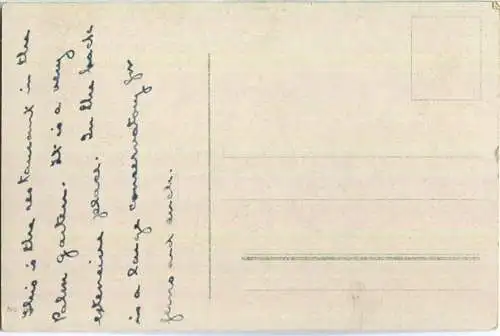 This is the restaurant in the
Palm Garten. It is a very
extensive place. In the back
is a large conservatory for
ferns and such.